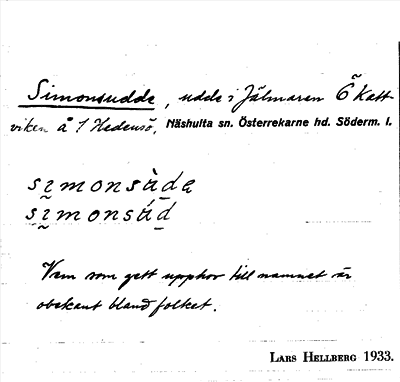 Simonsudde, udde i Jälmaren Ö Katt-
viken å / Hedensö, Näshulta sn. Österrekarne hd. Söderm. l.
sịmonsùdɐ
sịmonsúd
Vem som gett upphov till namnet är
obekant bland folket.
LARS HELLBERG 1933.